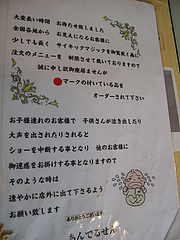 大変長い時間　お待たせ致しました
全国各地から　お見えになるお客様に
少しでも長く　サイキックマジックを御覧戴く為に
注文のメニューを　制限させて戴いておりますので
誠に申し訳御座居ませんが
●マークの付いている品を
オーダーされて下さい
お子様連れのお客様で　子供さんが泣き出したり
大声を出されたりされると
ショーを中断する事となり　他のお客様に
御迷惑をお掛けする事となりますので
そのような時は
速やかに店外に出て下さるよう
お願い致します
ありがとうございます
あんでるせん